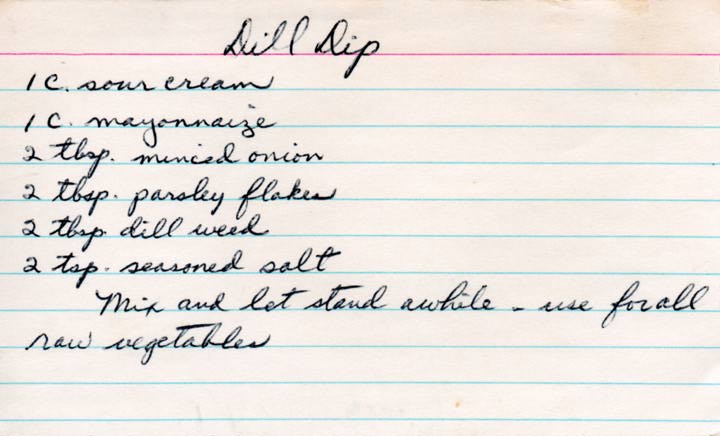 Dill Dip
1 C. sour cream
1 C. mayonnaize
2 tbsp. minced onion
2 tbsp. parsley flakes
2 tbsp. dill weed
2 tsp. seasoned salt
Mix and let stand awhile - use for all
raw vegetables